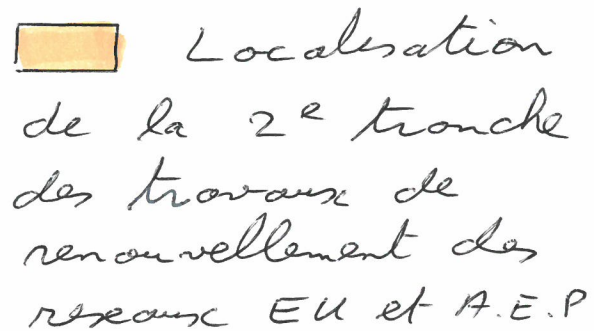 Localisation
de la 2e tranche
des travaux de
renouvellement des
reseaux EU et A.E.P